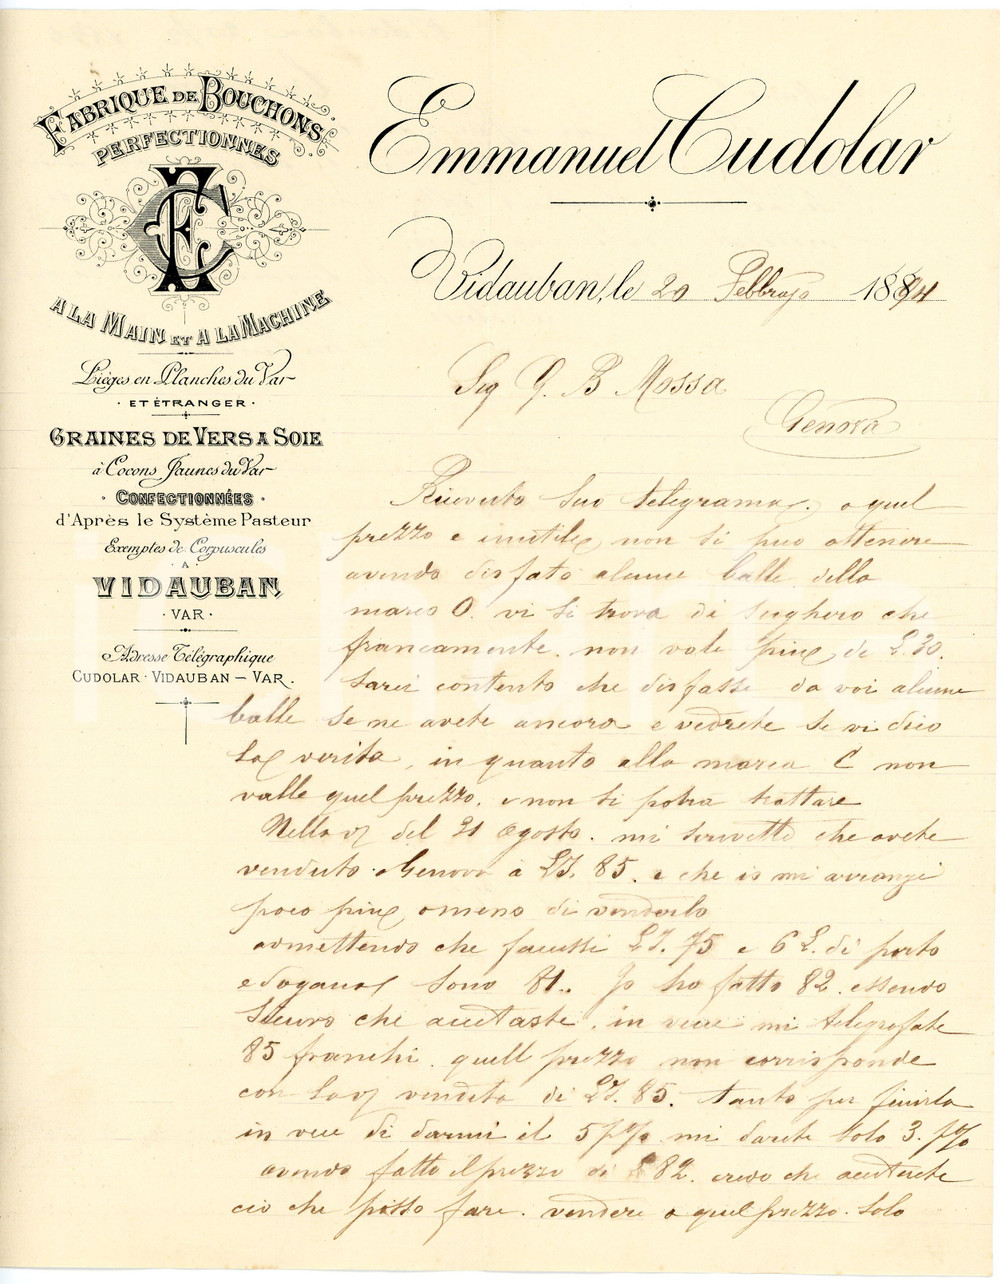 FABRIQUE DE BOUCHONS
PERFECTIONNES
EC
A LA MAIN ET A LA MACHINE
Lièges en Planches du Var
· ET ÉTRANGER ·
GRAINES DE VERS A SOIE
à Cocons Jaunes du Var
· CONFECTIONNÉES ·
d'Après le Système Pasteur
Exemptes de Corpuscules
· A ·
VIDAUBAN
· VAR ·
Adresse Télégraphique
CUDOLAR · VIDAUBAN — VAR.
Emmanuel Cudolar
Vidauban, le 20 Febbrajo 1894
Sig G. B Mossa
Genova
Ricevuto suo telegrama. a quel
prezzo e inutile non si puo ottenere
avendo disfato alcune balle della
marca O. vi si trova di sughero che
francamente. non vale piu de £.30.
sarei contento che disfasse da voi alcune
balle se ne avete ancora e vedrete se vi dico
la verita, in quanto alla marca C non
valle quel prezzo. e non si potra trattare
Nella vs del 21 Agosto. mi scrivette che avete
venduto Genova à £I. 85. e che io mi arrangi
poco piu o meno di venderlo
admettendo che facessi £I. 75 e 6 £. di porto
e dogana sono 81.. Io ho fatto 82. essendo
sicuro che accettaste, in vece mi telegrafate
85 franchi. quell prezzo non corrisponde
con la vs vendita di £I. 85. tanto per finirla
in vece di darmi il 5 p% mi darete solo 3. p%
avendo fatto il prezzo di £ 82. credo che accetterete
cio che posso fare. vendere a quel prezzo. solo